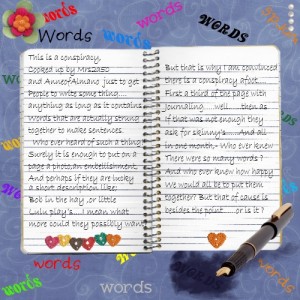 words
Words
words
WORDS
words
This is a conspiracy,
Cooked up by Mrs2a50
and AnneofAlmano just to get
People to write some thing....
anything as long as it contains
Words that are actually strung
together to make sentences.
Who ever heard of such a thing
Surely it is enough to put on a
page a photo,an embellishment,
And perhaps if they are lucky
a short description like;
Bob in the hay ,or little
Lulu play's....I mean what
more could they possibly want
But that is why I am convinced
there is a conspiracy afoot.
First a third of the page with
Journaling....well....then as
if that was not enough they
ask for skinny's.....And all
in one month- Who ever knew
There were so many words ?
And who ever knew how happy
We would all be to put them
together? But that of cause is
besides the point.....or is it ?
words
words
words
words